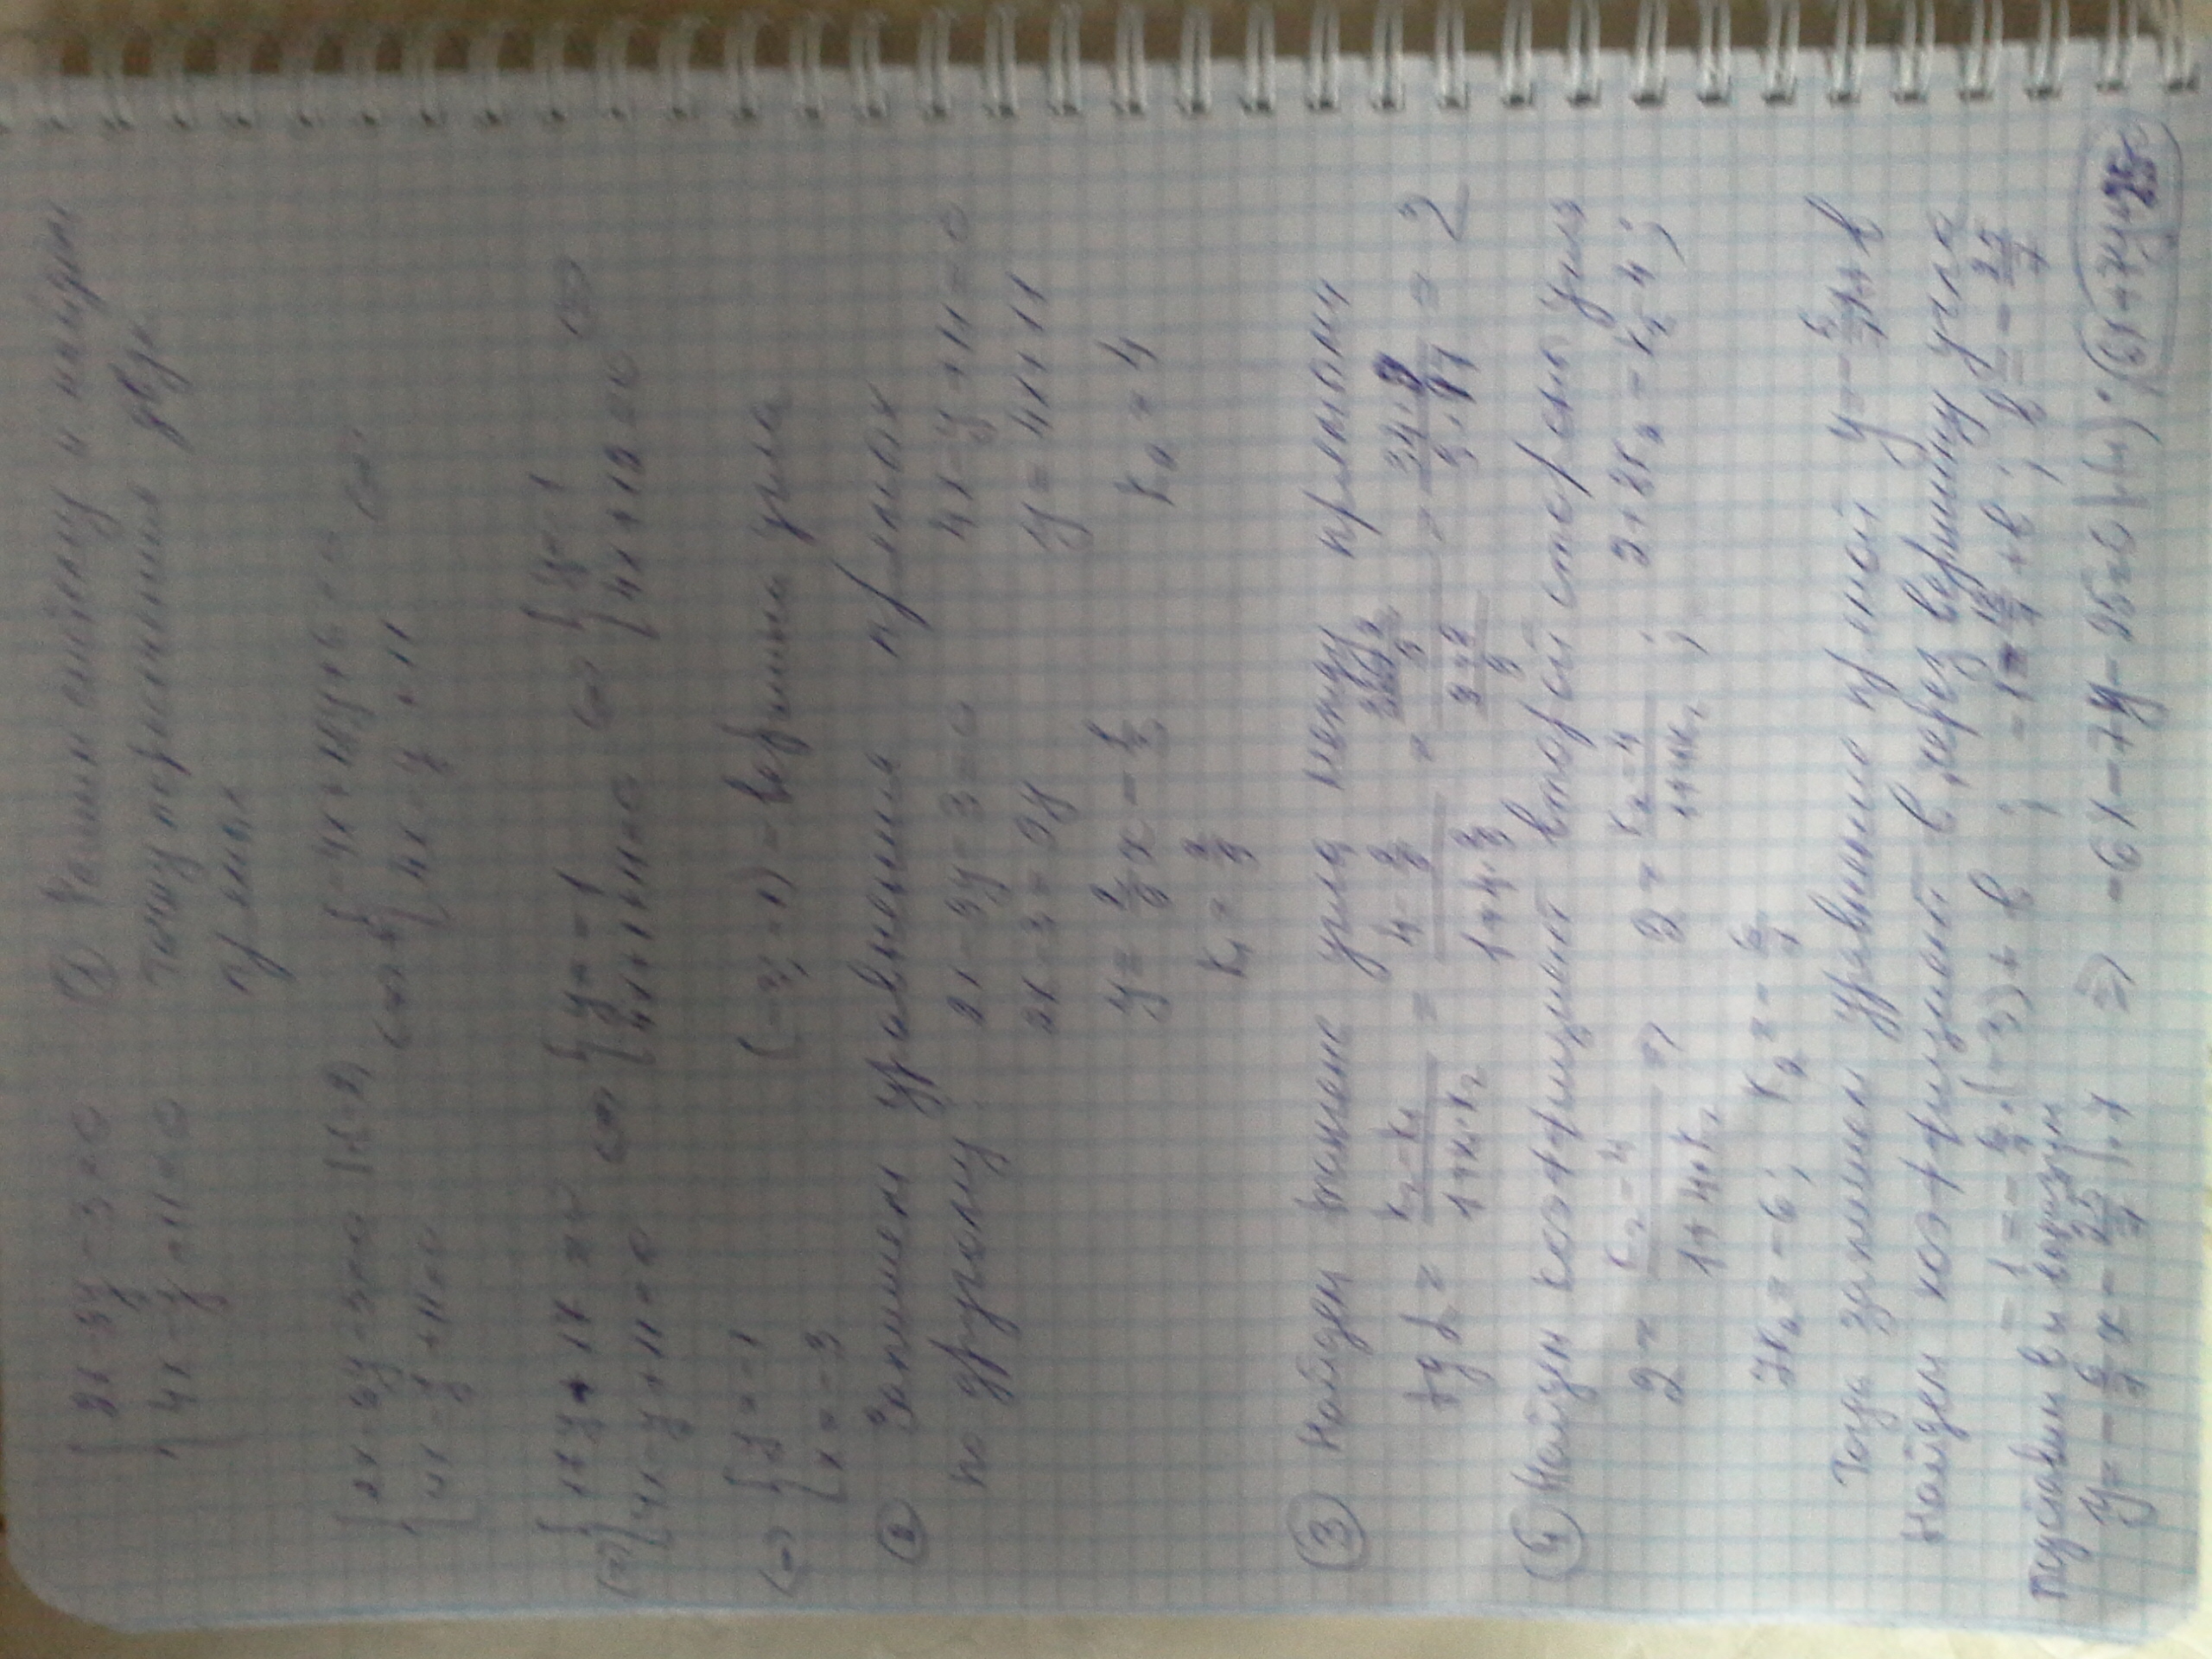 { 2x - 3y - 3 = 0
{ 4x - y + 11 = 0
① Решим систему и найдём
точку пересечения двух
прямых
{ 2x - 3y - 3 = 0 |·(-2)
{ 4x - y + 11 = 0
<=> { -4x + 6y + 6 = 0
{ 4x - y + 11
<=>
<=> { 5y + 17 = 0
{ 4x - y + 11 = 0
<=> { y = -1
{ 4x + 1 + 11 = 0
<=> { y = -1
{ 4x + 12 = 0 <=>
<=> { y = -1
{ x = -3
(-3; -1) - вершина угла
② Запишем уравнения прямых
по другому
2x - 3y - 3 = 0
2x - 3 = 3y
y = 2/3 x - 3/3
k₁ = 2/3
4x - y + 11 = 0
y = 4x + 11
k₂ = 4
③ Найдем тангенс угла между прямыми
tg α = (k₂ - k₁)/(1 + k₁·k₂) = (4 - 2/3)/(1 + 4·2/3) = = = 2
④ Найдем коэффициент второй стороны угла
2 = (k₂ - 4)/(1 + 4k₂) => 2 = (k₂ - 4)/(1 + 4k₂) ; 2 + 8k₂ = k₂ - 4 ;
7k₂ = -6 ; k₂ = - 6/7
Тогда запишем уравнение прямой y = - 6/7 x + b
Найдем коэффициент b через вершину угла
-1 = - 6/7 · (-3) + b ; -1 = 18/7 + b ; b = - 25/7
Подставим b и получим
y = - 6/7 x - 25/7 |·7 => -6x - 7y - 25 = 0 |·(-1) ; 6x + 7y + 25